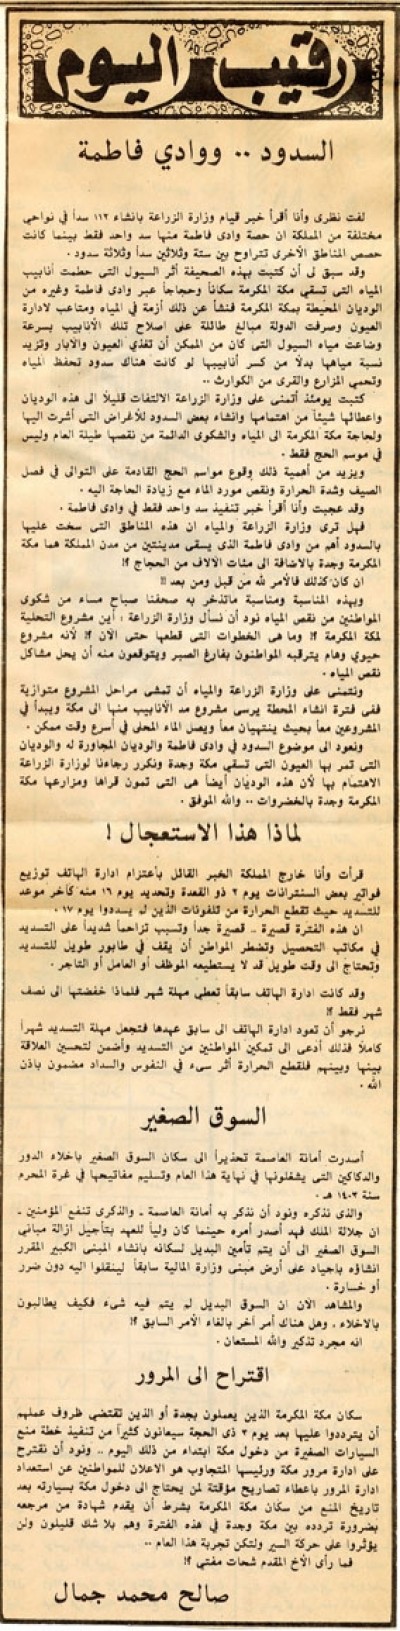 رقيب اليوم
السدود .. ووادي فاطمة
لفت نظرى وأنا أقرأ خبر قيام وزارة الزراعة بانشاء ١١٢ سدأ في نواحي
مختلفة من المملكة ان حصة وادى فاطمة منها سد واحد فقط بينما كانت
حصص المناطق الأخرى تتراوح بين ستة وثلاثين سدأ وثلاثة سدود .
وقد سبق لى أن كتبت بهذه الصحيفة أثر السيول التى حطمت أنابيب
المياه التى تسقي مكة المكرمة سكانأ وحجاجأ عبر وادى فاطمة وغيره من
الوديان المحيطة بمكة المكرمة فنشأ عن ذلك أزمة في المياه ومتاعب لادارة
العيون وصرفت الدولة مبالغ طائلة على اصلاح تلك الأنابيب بسرعة
وضاعت مياه السيول التى كان من الممكن أن تغذي العيون والابار وتزيد
نسبة مياهها بدلأ من كسر أنابيبها لو كانت هناك سدود تحفظ المياه
وتحمي المزارع والقرى من الكوارث ..
كتبت يومئذ أتمنى على وزارة الزراعة الالتفات قليلأ الى هذه الوديان
واعطائها شيئأ من اهتمامها وانشاء بعض السدود للأغراض التى أشرت اليها
ولحاجة مكة المكرمة الى المياه والشكوى الدائمة من نقصها طيلة العام وليس
في موسم الحج فقط .
ويزيد من أهمية ذلك وقوع مواسم الحج القادمة على التوالى في فصل
الصيف وشدة الحرارة ونقص مورد الماء مع زيادة الحاجة اليه .
وقد عجبت وأنا أقرأ خبر تنفيذ سد واحد فقط في وادى فاطمة .
فهل ترى وزارة الزراعة والمياه ان هذه المناطق التى سخت عليها
بالسدود أهم من وادى فاطمة الذى يسقى مدينتين من مدن المملكة هما مكة
المكرمة وجدة بالاضافة الى مئات الالاف من الحجاج ؟!
ان كان كذلك فالأمر لله من قبل ومن بعد !!
وبهذه المناسبة ومناسبة ماتذخر به صحفنا صباح مساء من شكوى
المواطنين من نقص المياه نود أن نسأل وزارة الزراعة : أين مشروع التحلية
لمكة المكرمة ؟! وما هى الخطوات التى قطعها حتى الآن ؟! لأنه مشروع
حيوي وهام يترقبه المواطنون بفارغ الصبر ويتوقعون منه أن يحل مشاكل
نقص المياه .
ونتمنى على وزارة الزراعة والمياه أن تمشى مراحل المشروع متوازية
ففى فترة انشاء المحطة يرسى مشروع مد الأنابيب منها الى مكة ويبدأ في
المشروعين معأ بحيث ينتهيان معأ ويصل الماء المحلى في أسرع وقت ممكن .
ونعود الى موضوع السدود في وادى فاطمة والوديان المجاورة له والوديان
التى تمر بها العيون التى تسقي مكة وجدة ونكرر رجاءنا لوزارة الزراعة
الاهتمام بها لأن هذه الوديان أيضأ هى التى تمون قراها ومزارعها مكة
المكرمة وجدة بالخضروات .. والله الموفق .
لماذا هذا الاستعجال !
قرأت وأنا خارج المملكة الخبر القائل بأعتزام ادارة الهاتف توزيع
فواتير بعض السنترانات يوم ٢ ذو القعدة وتحديد يوم ١٦ منه كآخر موعد
للتسديد حيث تقطع الحرارة من تلفونات الذين لم يسددوا يوم ١٧ .
ان هذه الفترة قصيرة .. قصيرة جدأ وتسبب تزاحمأ شديدأ على التسديد
في مكاتب التحصيل وتضطر المواطن أن يقف في طابور طويل للتسديد
وتحتاج الى وقت طويل قد لا يستطيعه الموظف أو العامل أو التاجر .
وقد كانت ادارة الهاتف سابقأ تعطي مهلة شهر فلماذا خفضتها الى نصف
شهر فقط ؟!
نرجو أن تعود ادارة الهاتف الى سابق عهدها فتجعل مهلة التسديد شهرأ
كاملأ فذلك أدعى الى تمكين المواطنين من التسديد وأضمن لتحسين العلاقة
بينها وبينهم فلقطع الحرارة أثر سىء في النفوس والسداد مضمون باذن
الله .
السوق الصغير
أصدرت أمانة العاصمة تحذيرأ الى سكان السوق الصغير باخلاء الدور
والدكاكين التى يشغلونها في نهاية هذا العام وتسليم مفاتيحها في غرة المحرم
سنة ١٤٠٣ هـ .
والذى نذكره ونود أن نذكر به أمانة العاصمة ـ والذكرى تنفع المؤمنين ـ
ان جلالة الملك فهد أصدر أمره حينما كان وليأ للعهد بتأجيل ازالة مبانى
السوق الصغير الى أن يتم تأمين البديل لسكانه بانشاء المبنى الكبير المقرر
انشاؤه باجياد على أرض مبنى وزارة المالية سابقأ لينقلوا اليه دون ضرر
أو خسارة .
والمشاهد الآن ان السوق البديل لم يتم فيه شىء فكيف يطالبون
بالاخلاء ، وهل هناك أمر آخر بالغاء الأمر السابق ؟!
انه مجرد تذكير والله المستعان .
اقتراح الى المرور
سكان مكة المكرمة الذين يعملون بجدة أو الذين تقتضي ظروف عملهم
أن يترددوا عليها بعد يوم ٢ ذى الحجة سيعانون كثيرأ من تنفيذ خطة منع
السيارات الصغيرة من دخول مكة ابتداء من ذلك اليوم .. ونود أن نقترح
على ادارة مرور مكة ورئيسها المتجاوب هو الاعلان للمواطنين عن استعداد
ادارة المرور باعطاء تصاريح مؤقتة لمن يحتاج الى دخول مكة بسيارته بعد
تاريخ المنع من سكان مكة المكرمة بشرط أن يقدم شهادة من مرجعه
بضرورة تردده بين مكة وجدة في هذه الفترة وهم بلا شك قليلون ولن
يؤثروا على حركة السير ولتكن تجربة هذا العام ..
فما رأى الأخ المقدم شحات مفتي ؟!
صالح محمد جمال